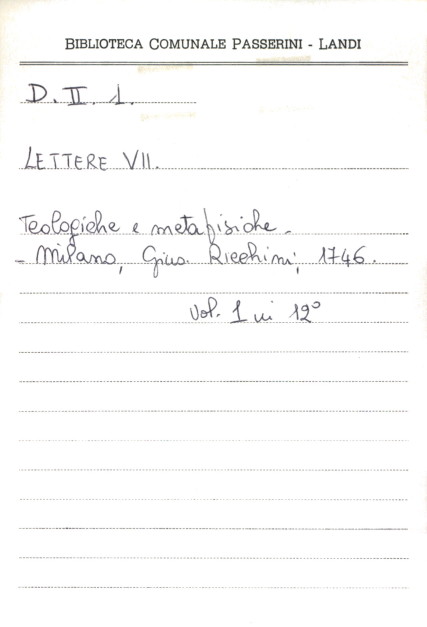 BIBLIOTECA COMUNALE PASSERINI - LANDI
D. II. 1.
LETTERE VII.
Teologiche e metafisiche -
- Milano, Gius. Ricchini, 1746.
Vol. 1 in 12°